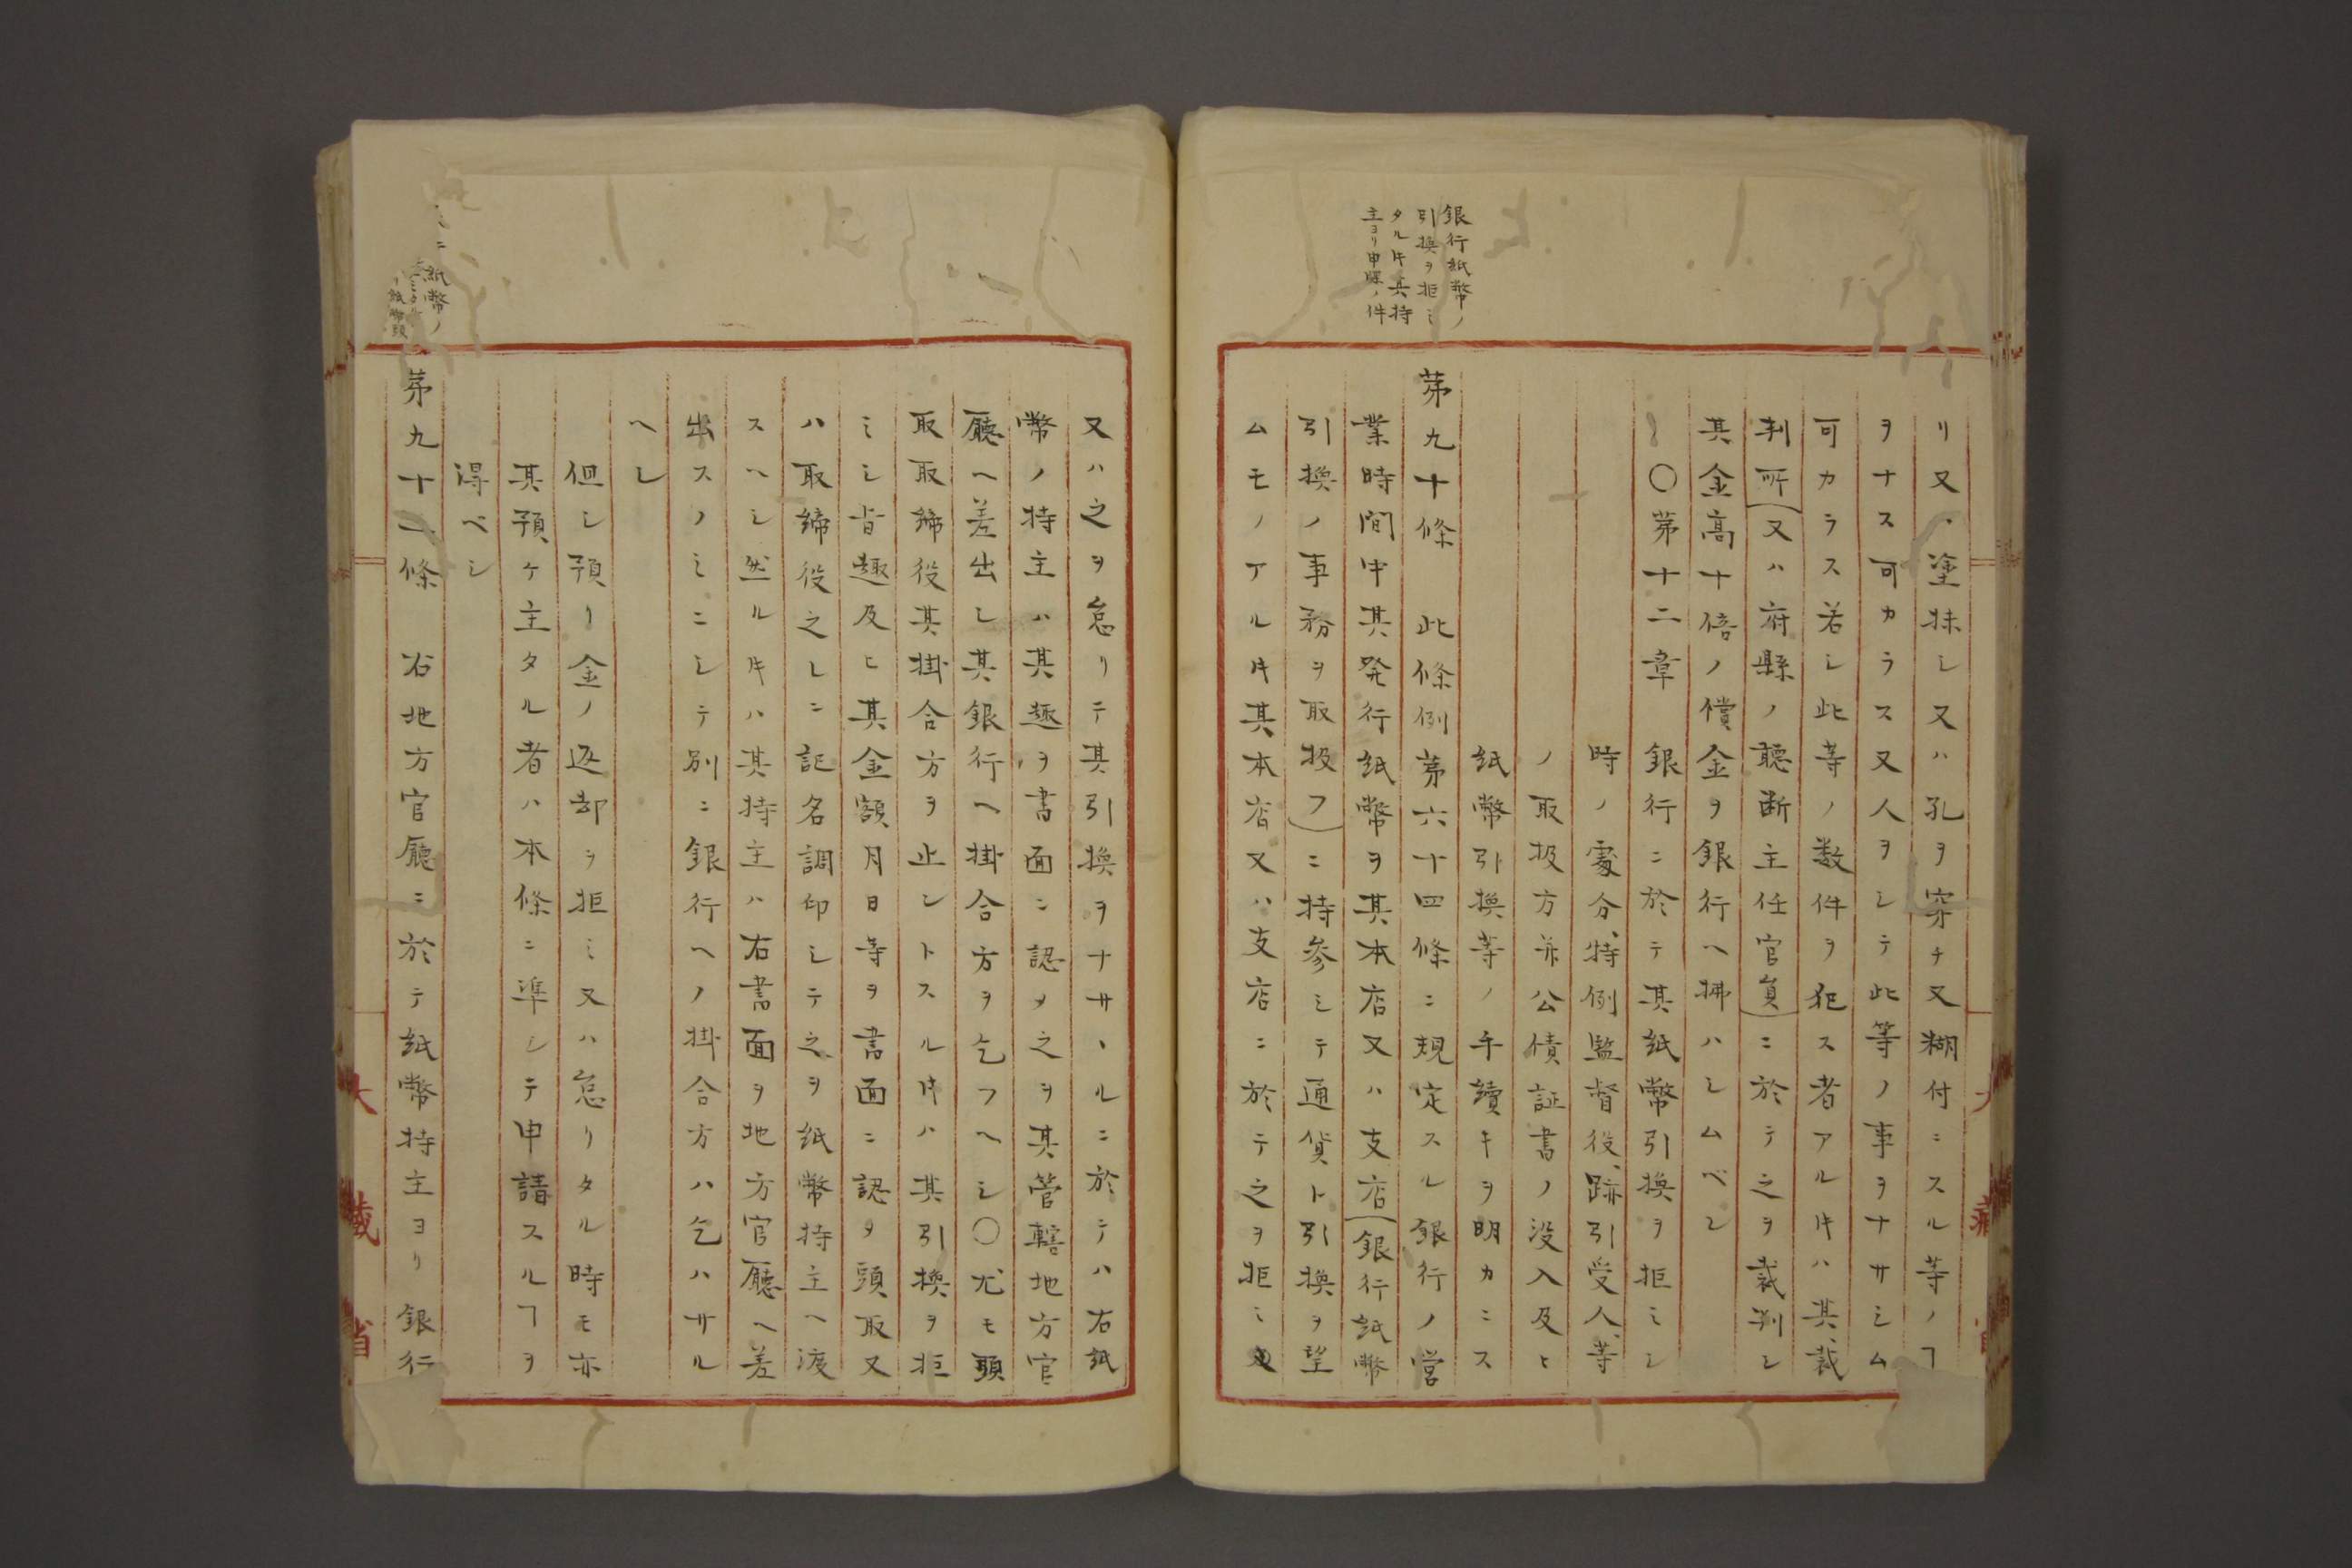 リ又ハ塗抹シ又ハ孔ヲ穿チ又糊付ニスル等ノヿ
ヲナス可カラス又人ヲシテ此等ノ事ヲナサシム
可カラス若シ此等ノ数件ヲ犯ス者アル𪜈ハ其裁
判所(又ハ府縣ノ聴断主任官員)ニ於テ之ヲ裁判シ
其金高十倍ノ償金ヲ銀行ヘ拂ハシムベシ
〇第十二章 銀行ニ於テ其紙幣引換ヲ拒ミシ
時ノ處分、特例監督役、跡引受人、等
ノ取扱方并公債証書ノ没入及ヒ
紙幣引換等ノ手續キヲ明カニス
銀行紙幣ノ
引換ヲ拒ミ
タル𪜈其持
主ヨリ申牒ノ件
苐九十條 此條例苐六十四條ニ規定スル銀行ノ営
業時間中其発行紙幣ヲ其本店又ハ支店(銀行紙幣
引換ノ事務ヲ取扱フ)ニ持参シテ通貨ト引換ヲ望
ムモノアル𪜈其本店又ハ支店ニ於テ之ヲ拒ミ
又ハ之ヲ怠リテ其引換ヲナサヽルニ於テハ右紙
幣ノ持主ハ其趣ヲ書面ニ認メ之ヲ其管轄地方官
廳ヘ差出シ其銀行ヘ掛合方ヲ乞フヘシ〇尤モ頭
取取締役其掛合方ヲ止シトスル𪜈ハ其引換ヲ拒
ミシ旨趣及ヒ其金額月日等ヲ書面ニ認メ頭取又
ハ取締役之レニ記名調印シテ之ヲ紙幣持主ヘ渡
スヘシ然ル𪜈ハ其持主ハ右書面ヲ地方官廳ヘ差
出スノミニシテ別ニ銀行ヘノ掛合方ハ乞ハサル
ヘシ
但シ預リ金ノ返却ヲ拒ミ又ハ怠リタル時モ亦
其預ケ主タル者ハ本條ニ準シテ申請スルヿヲ
得ベシ
紙幣ノ
苐九十一條 右地方官廳ニ於テ紙幣持主ヨリ銀行
大藏省